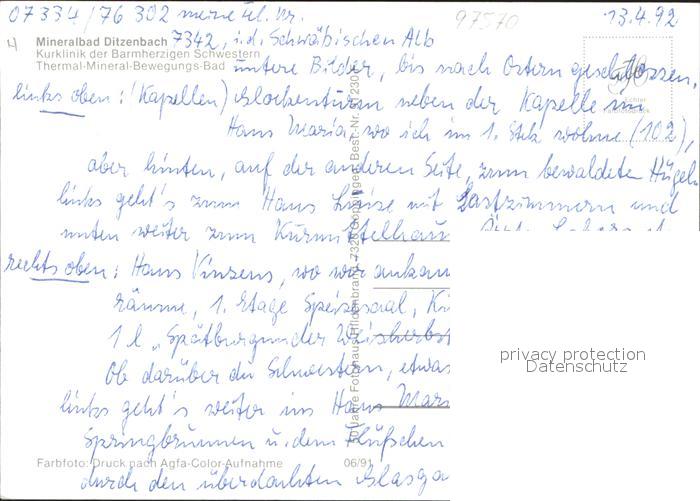 07334/76 302 meine Tel. Nr. 97570 13.4.92
4 Mineralbad Ditzenbach 7342, i.d. Schwäbischen Alb
Kurklinik der Barmherzigen Schwestern
Thermal-Mineral-Bewegungs-Bad
untere Bilder, bis nach Ostern geschlossen.
links oben: (Kapellen) Glockenturm neben der Kapelle
Haus Maria, wo ich im 1. Stck wohne (102),
aber hinten, auf der anderen Seite, zum bewaldeten Hügel
links geht's zum Haus Luise mit Gastzimmern und
unten weiter zum Kurmittelhaus
rechts oben: Haus Vinzens, wo wir ankam
räume, 1. Etage Speisesaal,
1 l „Spätburgunder Weissherbst
Ob darüber die Schwestern, etwas
links geht's weiter ins Haus Mari
Springbrunnen u. dem Flüßchen
durch den überdachten Glasga
Farbfoto: Druck nach Agfa-Color-Aufnahme 06/91
50 Jahre Fotohaus Hildenbrand, 7320 Göppingen, Best.-Nr.
privacy protection
Datenschutz